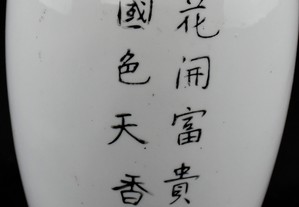 花開富貴
國色天香